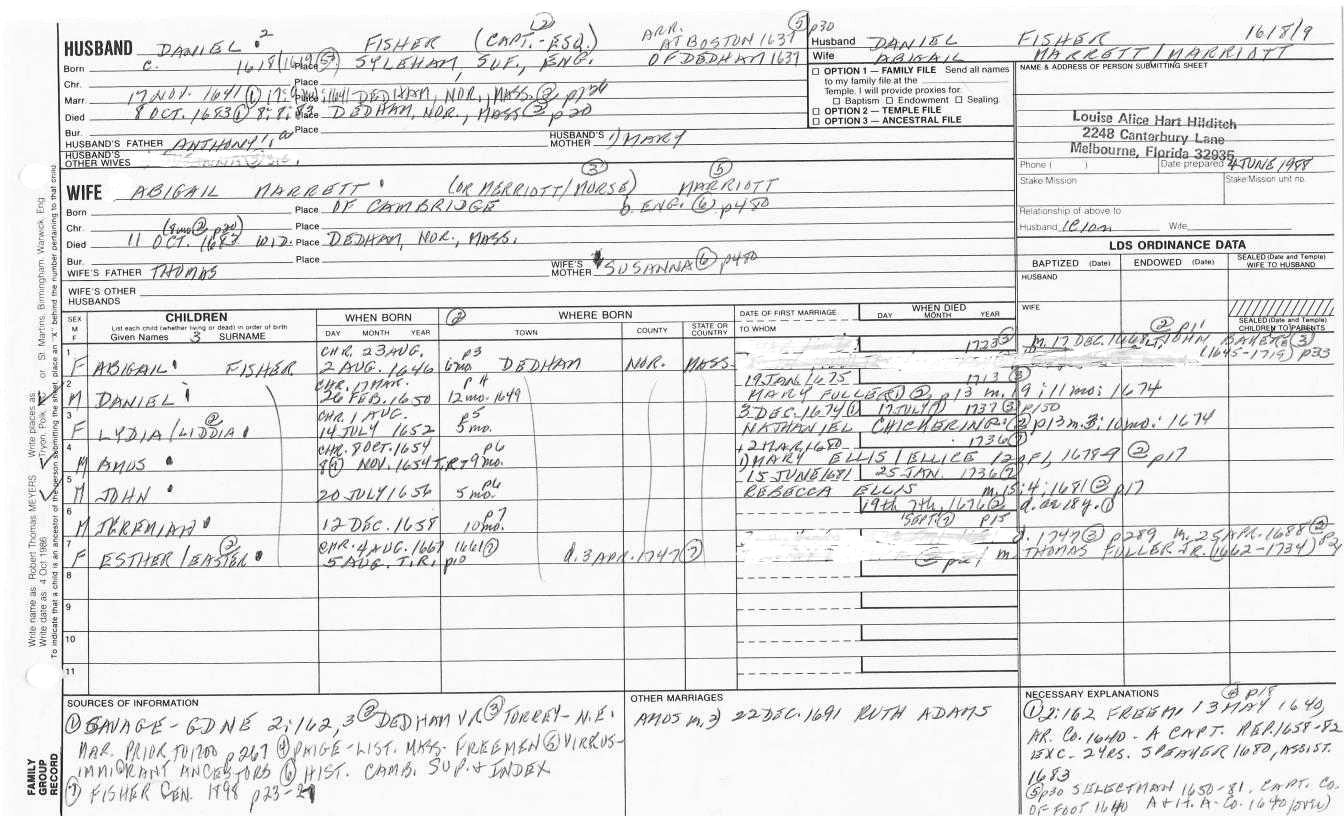 HUSBAND DANIEL 2 FISHER (CAPT.-ESQ.) ARR. AT BOSTON 1637 (5) p30
Born c. 1618/1619 (5) Place SYLEHAM, SUF., ENG. OF DEDHAM 1637
Chr. Place
Marr. 17 NOV. 1641 (1) Place DEDHAM, NOR., MASS. (2) p126
Died 8 OCT. 1683 (1) 8; 8; 83 Place DEDHAM, NOR., MASS (2) p20
Bur. Place
HUSBAND'S FATHER ANTHONY HUSBAND'S MOTHER 1) MARY
HUSBAND'S OTHER WIVES
WIFE ABIGAIL MARRETT (OR MERRIOTT/MORSE) (3) MARRIOTT (5)
Born Place OF CAMBRIDGE b. ENG. (6) p480
Chr. (8mo (2) p20) Place
Died 11 OCT. 1683 Place DEDHAM, NOR., MASS.
Bur. Place
WIFE'S FATHER THOMAS WIFE'S MOTHER SUSANNA (6) p480
WIFE'S OTHER HUSBANDS
Husband DANIEL FISHER 1618/9
Wife ABIGAIL MARRETT/MARRIOTT
OPTION 1 — FAMILY FILE Send all names to my family file at the
Temple. I will provide proxies for:
Baptism Endowment Sealing
OPTION 2 — TEMPLE FILE
OPTION 3 — ANCESTRAL FILE
NAME & ADDRESS OF PERSON SUBMITTING SHEET
Louise Alice Hart Hilditch
2248 Canterbury Lane
Melbourne, Florida 32935
Phone ( ) Date prepared 4 JUNE 1988
Stake/Mission Stake/Mission unit no.
Relationship of above to
Husband Wife
LDS ORDINANCE DATA
BAPTIZED (Date) ENDOWED (Date) SEALED (Date and Temple) WIFE TO HUSBAND
HUSBAND
WIFE
SEALED (Date and Temple) CHILDREN TO PARENTS
SEX M F
CHILDREN
List each child (whether living or dead) in order of birth
Given Names 3 SURNAME
WHEN BORN
DAY MONTH YEAR
(2) WHERE BORN
TOWN COUNTY STATE OR COUNTRY
DATE OF FIRST MARRIAGE
TO WHOM
WHEN DIED
DAY MONTH YEAR
1 F ABIGAIL FISHER CHR. 23 AUG. 2 AUG. 1646 p3 6mo. DEDHAM NOR. MASS. 1723 (3) m. 17 DEC. 1668 (2) p11 LT. JOHN BAKER (3) (1645-1719) p33
2 M DANIEL CHR. 17 MAR. 26 FEB. 1650 p4 12 mo. 1649 19 JAN/1675 1713 (3)
MARY FULLER (1) (2) p13 m. 19; 11 mo; 1674
3 F LYDIA/LIDDIA (2) CHR. 1 AUG. 14 JULY 1652 p5 5mo. 3 DEC. 1674 (1) 17 JULY (7) 1737 (3) p150
NATHANIEL CHICKERING (2) p13 m. 3; 10 mo; 1674
4 M AMOS CHR. 8 OCT. 1654 8 (1) NOV. 1654 T.R. p6 +2 MAR, 1680 1736 (7)
1) MARY ELLIS/ELLICE 12 1678-9 (2) p17
5 M JOHN 20 JULY 1656 p6 5 mo. 15 JUNE 1681 25 JAN. 1736 (7)
REBECCA ELLIS m. 15; 4; 1681 (2) p17
6 M JEREMIAH 12 DEC. 1658 p7 10mo. 19th 7th, 1676 (2) SEPT. (7) p15 d. ae 18 y. (1)
7 F ESTHER/EASTER (2) CHR. 4 AUG. 1667 5 AUG. T.R. 1661 (7) p10 d. 3 APR. 1747 (7) d. 1747 (3) p289 m. 25 APR. 1688 (2)
m. THOMAS FULLER JR. (1662-1734)
8
9
10
11
SOURCES OF INFORMATION
(1) SAVAGE - GDNE 2; 162, 3 (2) DEDHAM VR (3) TORREY - N.E.
MAR. PRIOR TO 1700 p267 (4) PAIGE - LIST. MASS. FREEMEN (5) VIRKUS -
IMMIGRANT ANCESTORS (6) HIST. CAMB. SUP. & INDEX
(7) FISHER GEN. 1898 p23-2
OTHER MARRIAGES
AMOS m. 2) 22 DEC. 1691 RUTH ADAMS
NECESSARY EXPLANATIONS (4) p18
(1) 2; 162 FREEM. 13 MAY 1640,
AR. CO. 1640 - A CAPT. REP. 1658-82
EXC. 2 YRS. SPEAKER 1680, ASSIST.
1683
(5) p30 SELECTMAN 1650-81, CAPT. CO.
OF FOOT 1640 A & H. A - CO. 1640 (over)
FAMILY GROUP RECORD
Write name as Robert Thomas MEYERS Write places as Tryon, Polk, or St. Martins, Birmingham, Warwick, Eng.
Write date as 4 Oct 1986
To indicate that a child is an ancestor of the person submitting the sheet, place an "X" behind the number pertaining to that child.